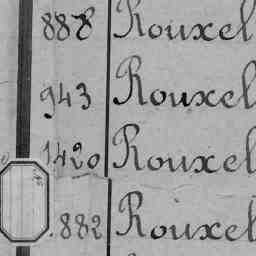 888 Rouxel
943 Rouxel
1420 Rouxel
882 Rouxel